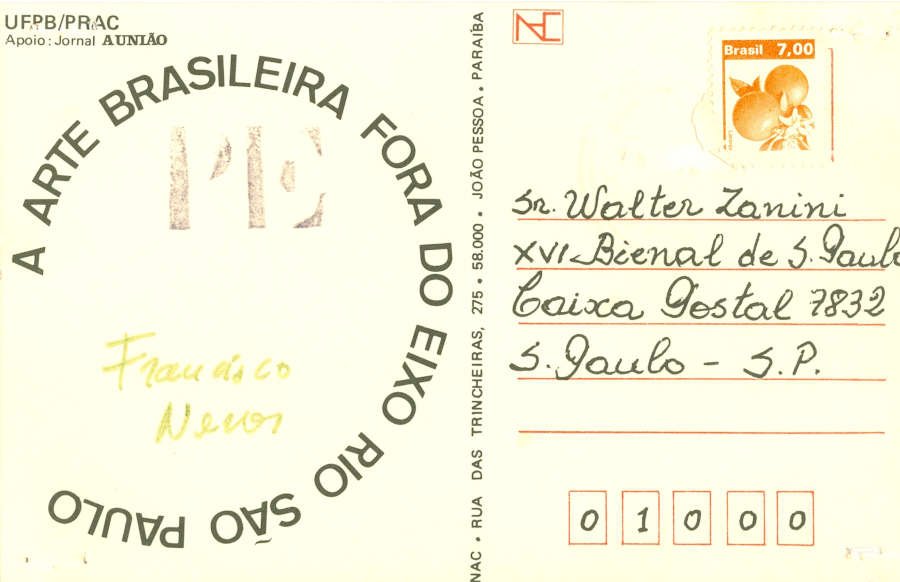 UFPB/PRAC
Apoio: Jornal A UNIÃO
A ARTE BRASILEIRA FORA DO EIXO RIO SÃO PAULO
PE
Francisco
Neves
NAC • RUA DAS TRINCHEIRAS, 275 • 58.000 • JOÃO PESSOA • PARAÍBA
NAC
Brasil 7,00
Sr. Walter Zanini
XVI-Bienal de S. Paulo
Caixa Postal 7832
S. Paulo - S.P.
0 1 0 0 0